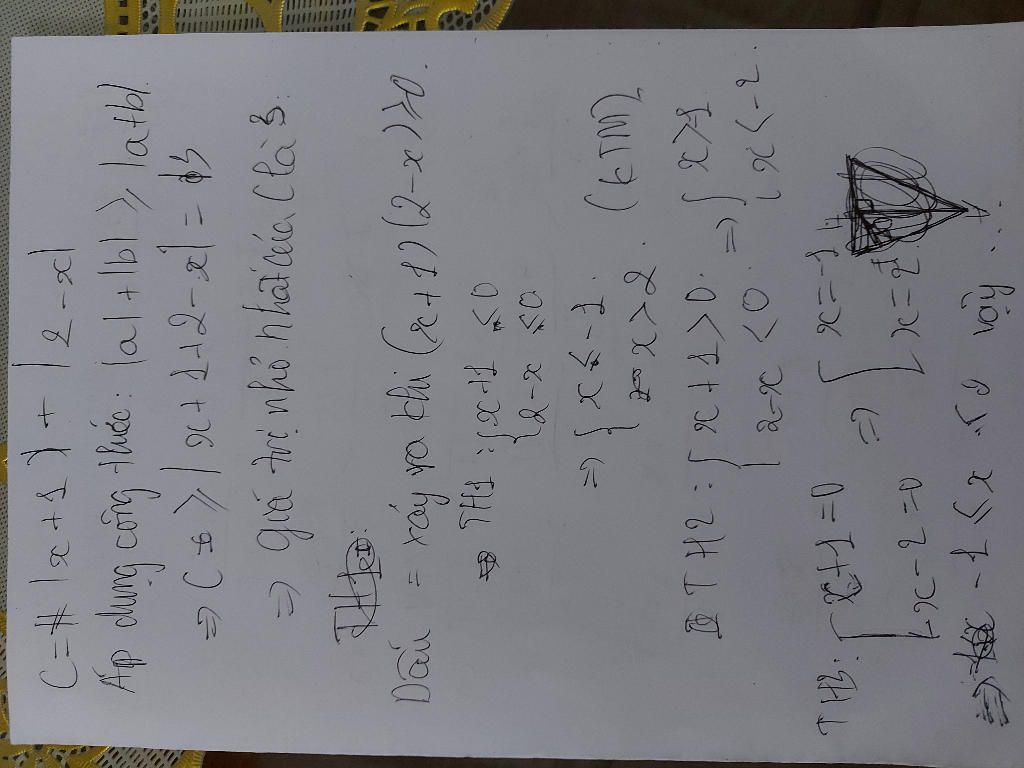 C = |x + 1| + |2 - x|
Áp dụng công thức: |a| + |b| ≥ |a+b|
⇒ C ≥ |x + 1 + 2 - x| = 3
⇒ giá trị nhỏ nhất của C là 3.
Dấu = xảy ra khi (x+1)(2-x) ≥ 0.
TH1: { x+1 ≤ 0
{ 2-x ≤ 0
⇒ { x ≤ -1.
{ x > 2. (KTM)
TH2: { x+1 > 0. ⇒ { x > -1
{ 2-x < 0. { x < -2
TH3: [ x+1 = 0 ⇒ [ x = -1
[ x-2 = 0 [ x = 2
⇒ -1 ≤ x ≤ vậy ...